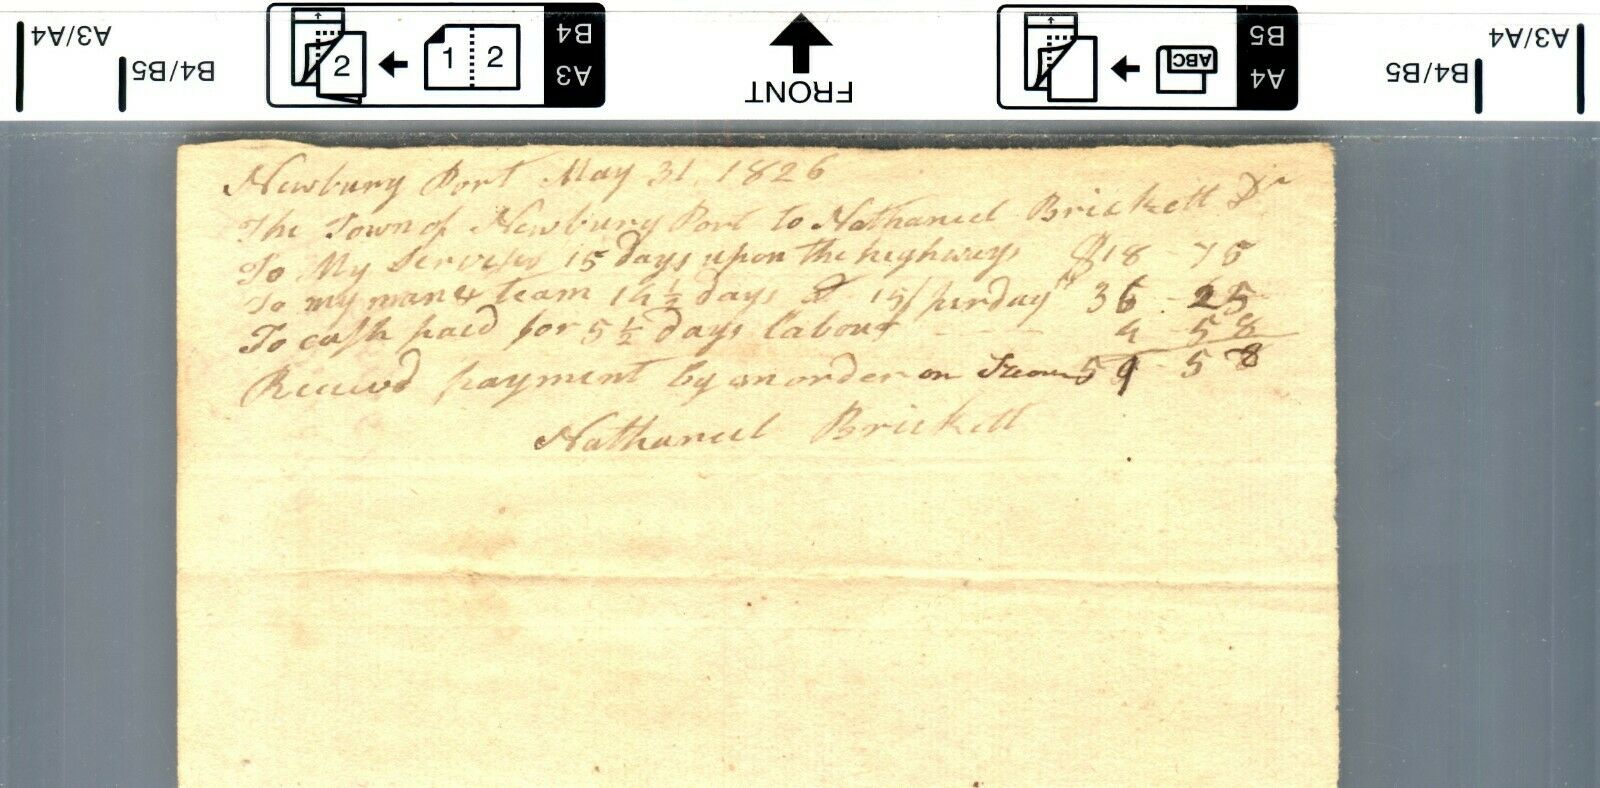 A3/A4
B4/B5
2
1 2
B4
A3
FRONT
ABC
B5
A4
B4/B5
A3/A4
Newbury Port May 31, 1826
The Town of Newbury Port to Nathaniel Brickett Dr
To My Services 15 days upon the highways $18-75
To my man & team 14 1/2 days @ 15/ per day 36-25
To cash paid for 5 1/2 days labour 4-58
Receivd payment by an order on 59-58
Nathaniel Brickett